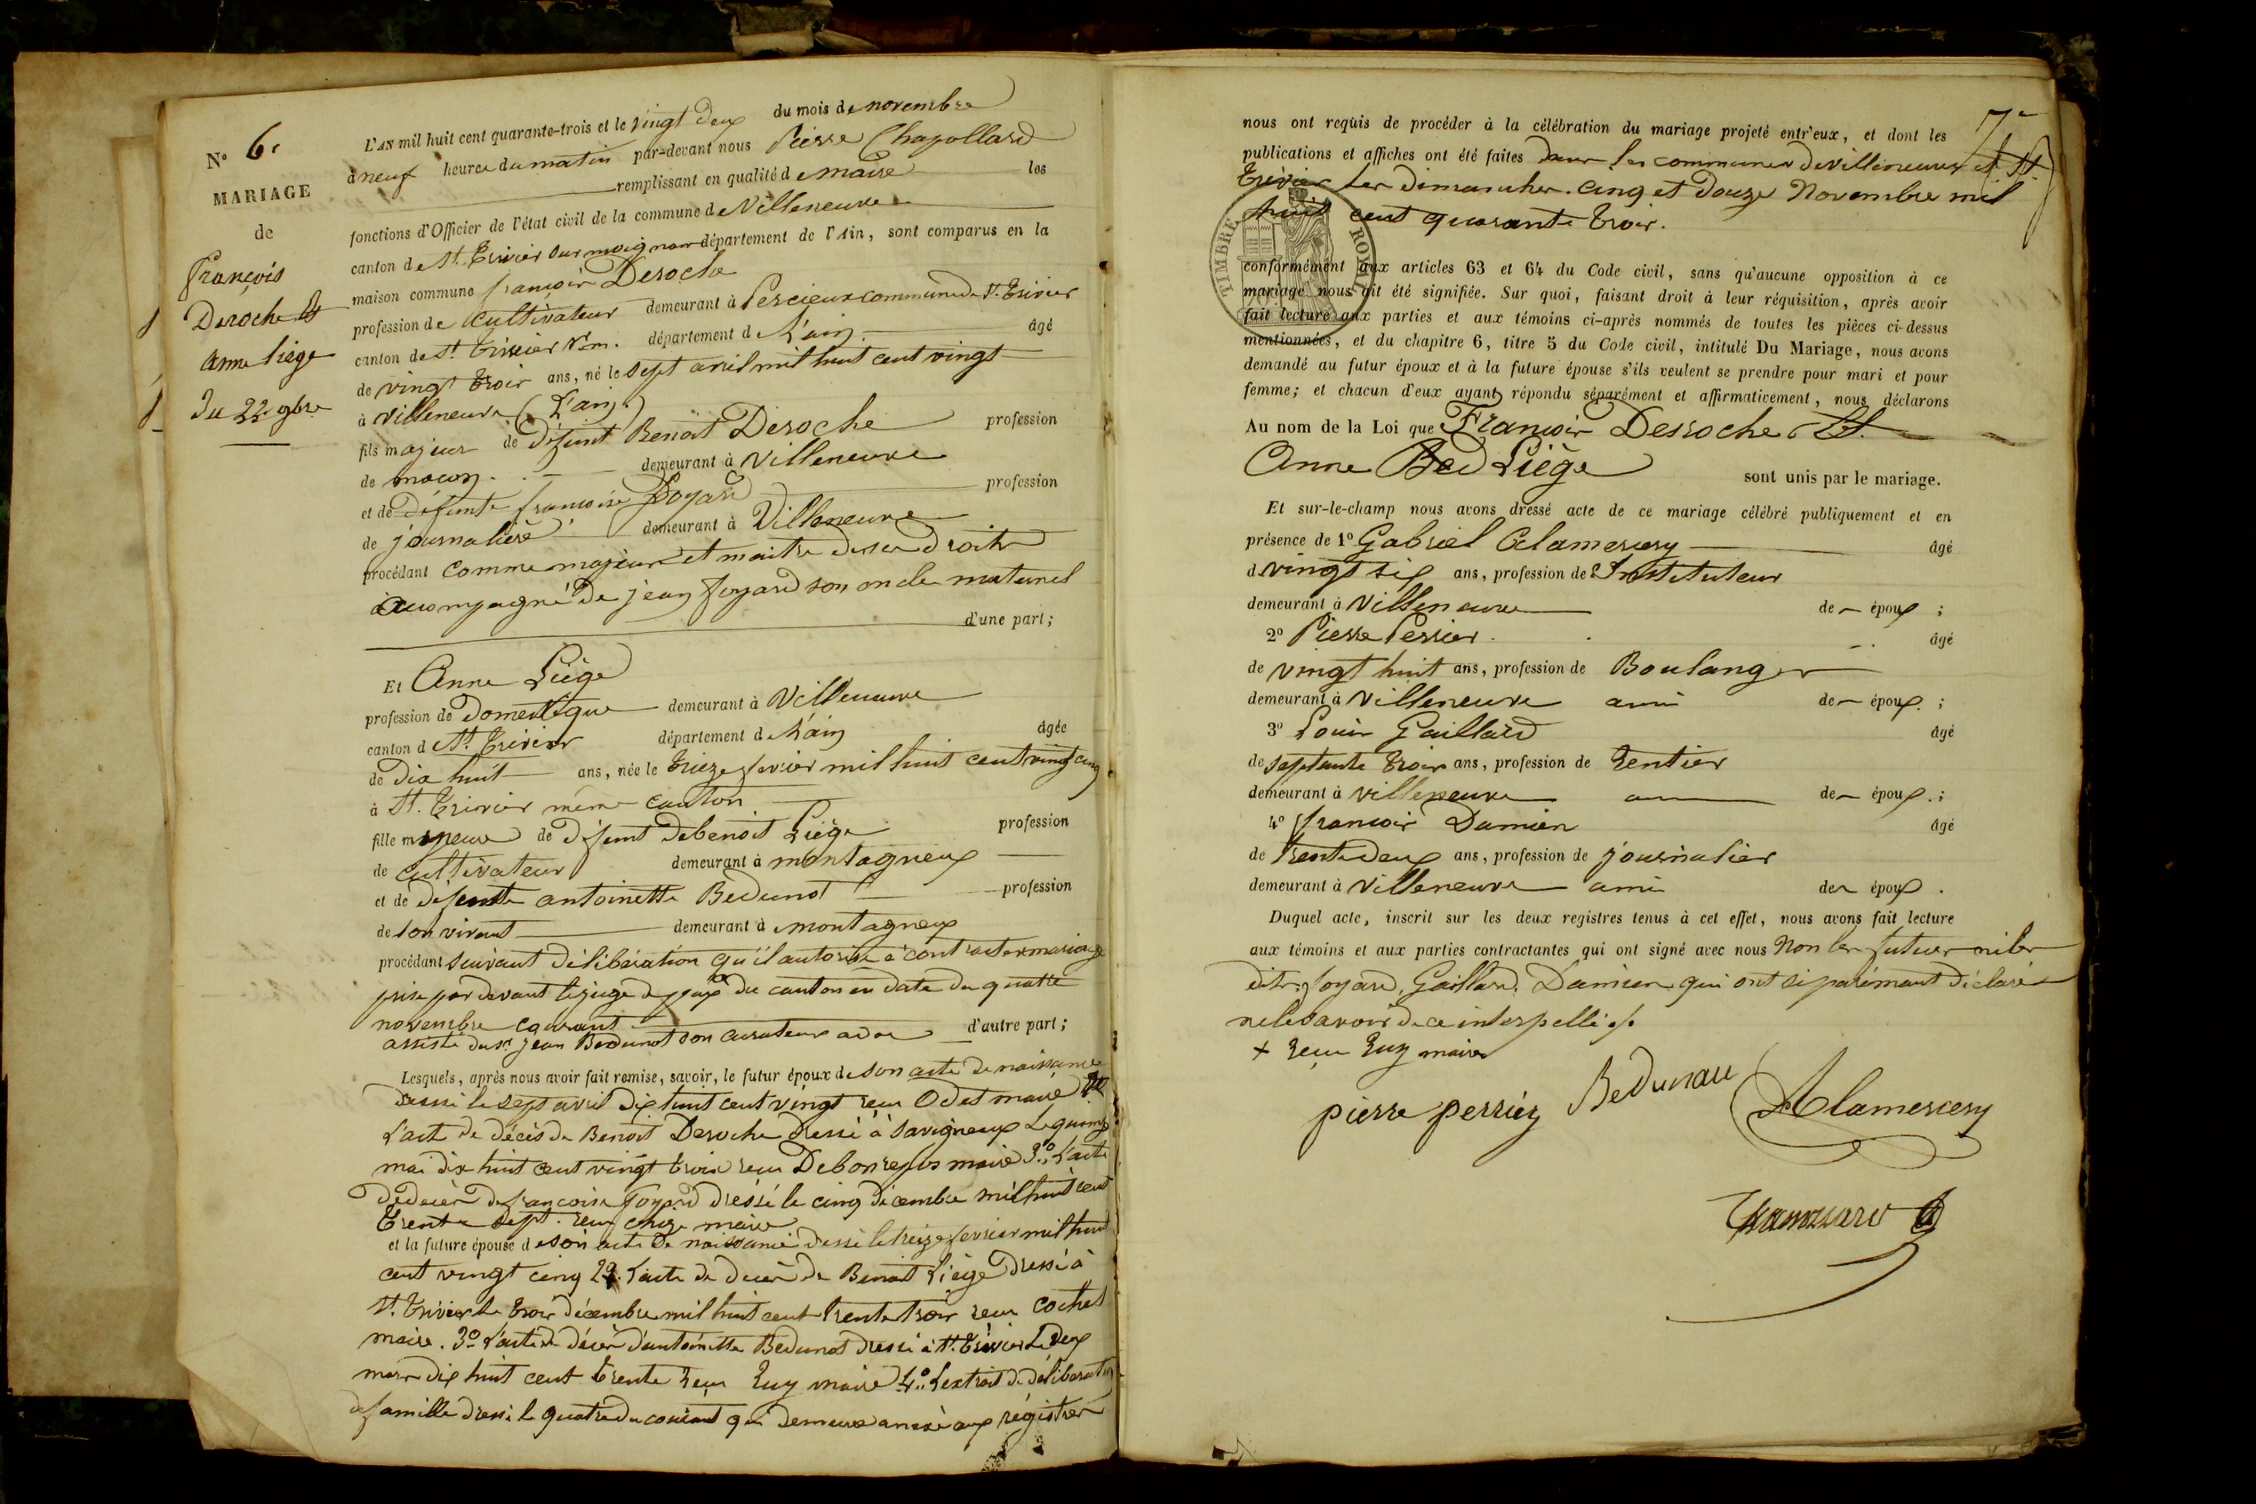 N° 6.
MARIAGE
de
françois
Deroche et
Anne Liège
Du 22 9bre
L'AN mil huit cent quarante-trois et le vingt deux du mois de novembre
à neuf heures du matin par-devant nous Pierre Chapollard
remplissant en qualité de maire les
fonctions d'Officier de l'état civil de la commune de Villeneuve
canton de St. Trivier sur moignans département de l'Ain, sont comparus en la
maison commune françois Deroche
profession de cultivateur demeurant à Percieux commune de St. Trivier
canton de St. Trivier s. m. département de L'ain âgé
de vingt trois ans, né le sept avril mil huit cent vingt
à Villeneuve (L'ain)
fils majeur de défunt Benoit Deroche profession
de maçon demeurant à Villeneuve
et de défunte francoise foyard profession
de journalière demeurant à Villeneuve
procédant comme majeur et maitre de ses droits
accompagné de jean foyard son oncle maternel
d'une part;
Et Anne Liège
profession de Domestique demeurant à Villeneuve
canton de St. Trivier département de L'ain âgée
de dix huit ans, née le treize fevrier mil huit cent vingt cinq
à St. Trivier même canton
fille mineure de défunt de benoit Liège profession
de cultivateur demeurant à montagneux
et de défunte antoinette Bedunot profession
de son vivant demeurant à montagneux
procédant suivant délibération qu'il autorise à contracter mariage
prise par devant le juge de paix du canton en date du quatre
novembre courant
assisté du sr. jean Bedunot son curateur ad oc d'autre part;
Lesquels, après nous avoir fait remise, savoir, le futur époux de son acte de naissance
dressé le sept avril dix huit cent vingt reçu Odet maire
L'acte de décès de Benoit Deroche dressé à Savigneux Le quinze
mai dix huit cent vingt trois reçu Debonrepos maire 3° L'acte
de décès de francoise foyard dréssé le cinq décembre mil huit cent
trente sept. reçu maire
et la future épouse de son acte de naissance dressé le treize fevrier mil huit
cent vingt cinq 2° L'acte de décès de Benoit Liège dressé à
St. Trivier le trois décembre mil huit cent trente trois reçu Cochet
maire. 3° L'acte de décès d'antoinette Bedunot dressé à St. Trivier Le deux
mars dix huit cent trente reçu Ruy maire 4° L'extrait de déliberation
de famille dressé le quatre du courant qui demeure anexé aux régistres
7e
nous ont requis de procéder à la célébration du mariage projeté entr'eux, et dont les
publications et affiches ont été faites dans les communes de villeneuve et St.
Trivier les dimanches cinq et douze Novembre mil
huit cent quarante trois.
TIMBRE ROYAL
conformément aux articles 63 et 64 du Code civil, sans qu'aucune opposition à ce
mariage nous ait été signifiée. Sur quoi, faisant droit à leur réquisition, après avoir
fait lecture aux parties et aux témoins ci-après nommés de toutes les pièces ci-dessus
mentionnées, et du chapitre 6, titre 5 du Code civil, intitulé Du Mariage, nous avons
demandé au futur époux et à la future épouse s'ils veulent se prendre pour mari et pour
femme; et chacun d'eux ayant répondu séparément et affirmativement, nous déclarons
Au nom de la Loi que François Desroche et
Anne Liège sont unis par le mariage.
Et sur-le-champ nous avons dressé acte de ce mariage célébré publiquement et en
présence de 1° Gabriel Clamercery âgé
de vingt six ans, profession de Instituteur
demeurant à Villeneuve de époux ;
2° Pierre Perrier âgé
de vingt huit ans, profession de Boulanger
demeurant à Villeneuve ami de époux. ;
3° Louis Gaillard âgé
de septante trois ans, profession de rentier
demeurant à villeneuve ami de époux. ;
4° francois Damien âgé
de trente deux ans, profession de journalier
demeurant à Villeneuve ami de époux .
Duquel acte, inscrit sur les deux registres tenus à cet effet, nous avons fait lecture
aux témoins et aux parties contractantes qui ont signé avec nous Non les futurs ni les
dits foyard, Gaillard, Damien qui ont séparémant déclaré
ne le savoir de ce interpellé ./.
+ reçu Ruy maire
pierre perriéz Bedunau Clamercery